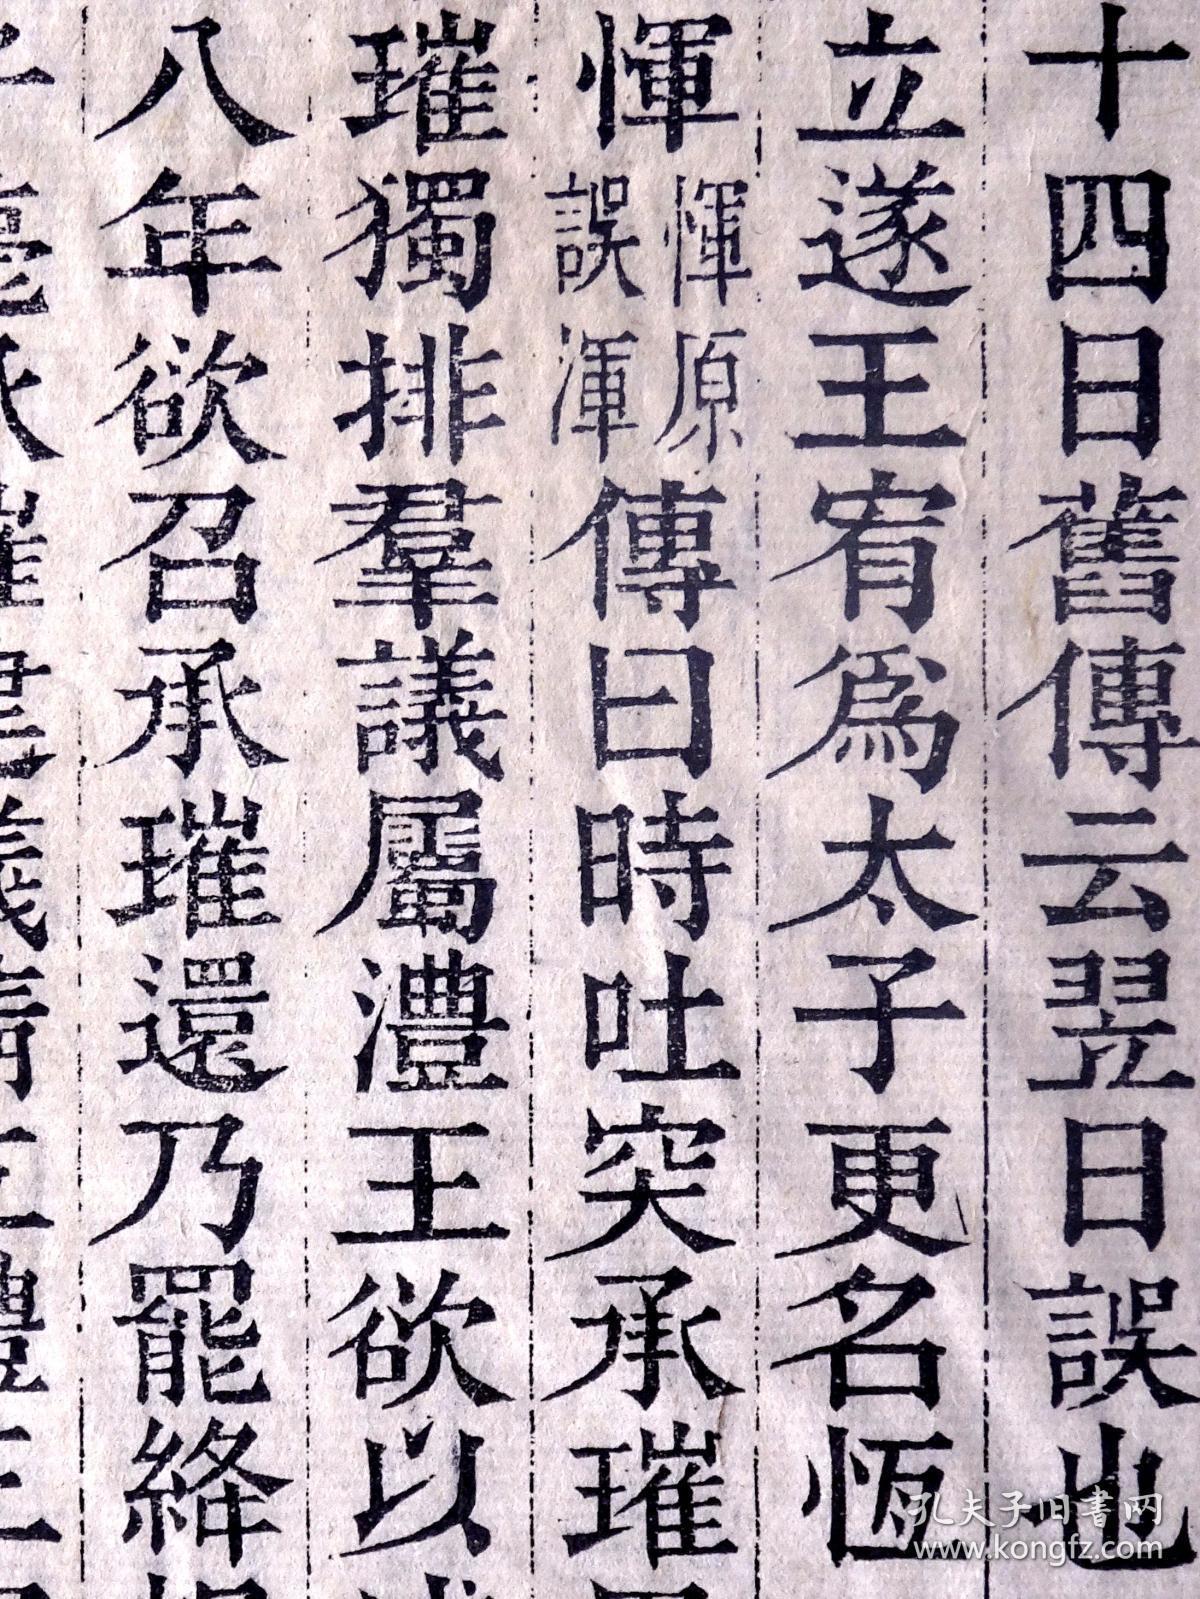 十四日舊傳云翌日誤也
立遂王宥爲太子更名恆
惲惲原誤渾傳曰時吐突承璀
璀獨排羣議屬澧王欲以
八年欲召承璀還乃罷絳
孔夫子旧书网
www.kongfz.com